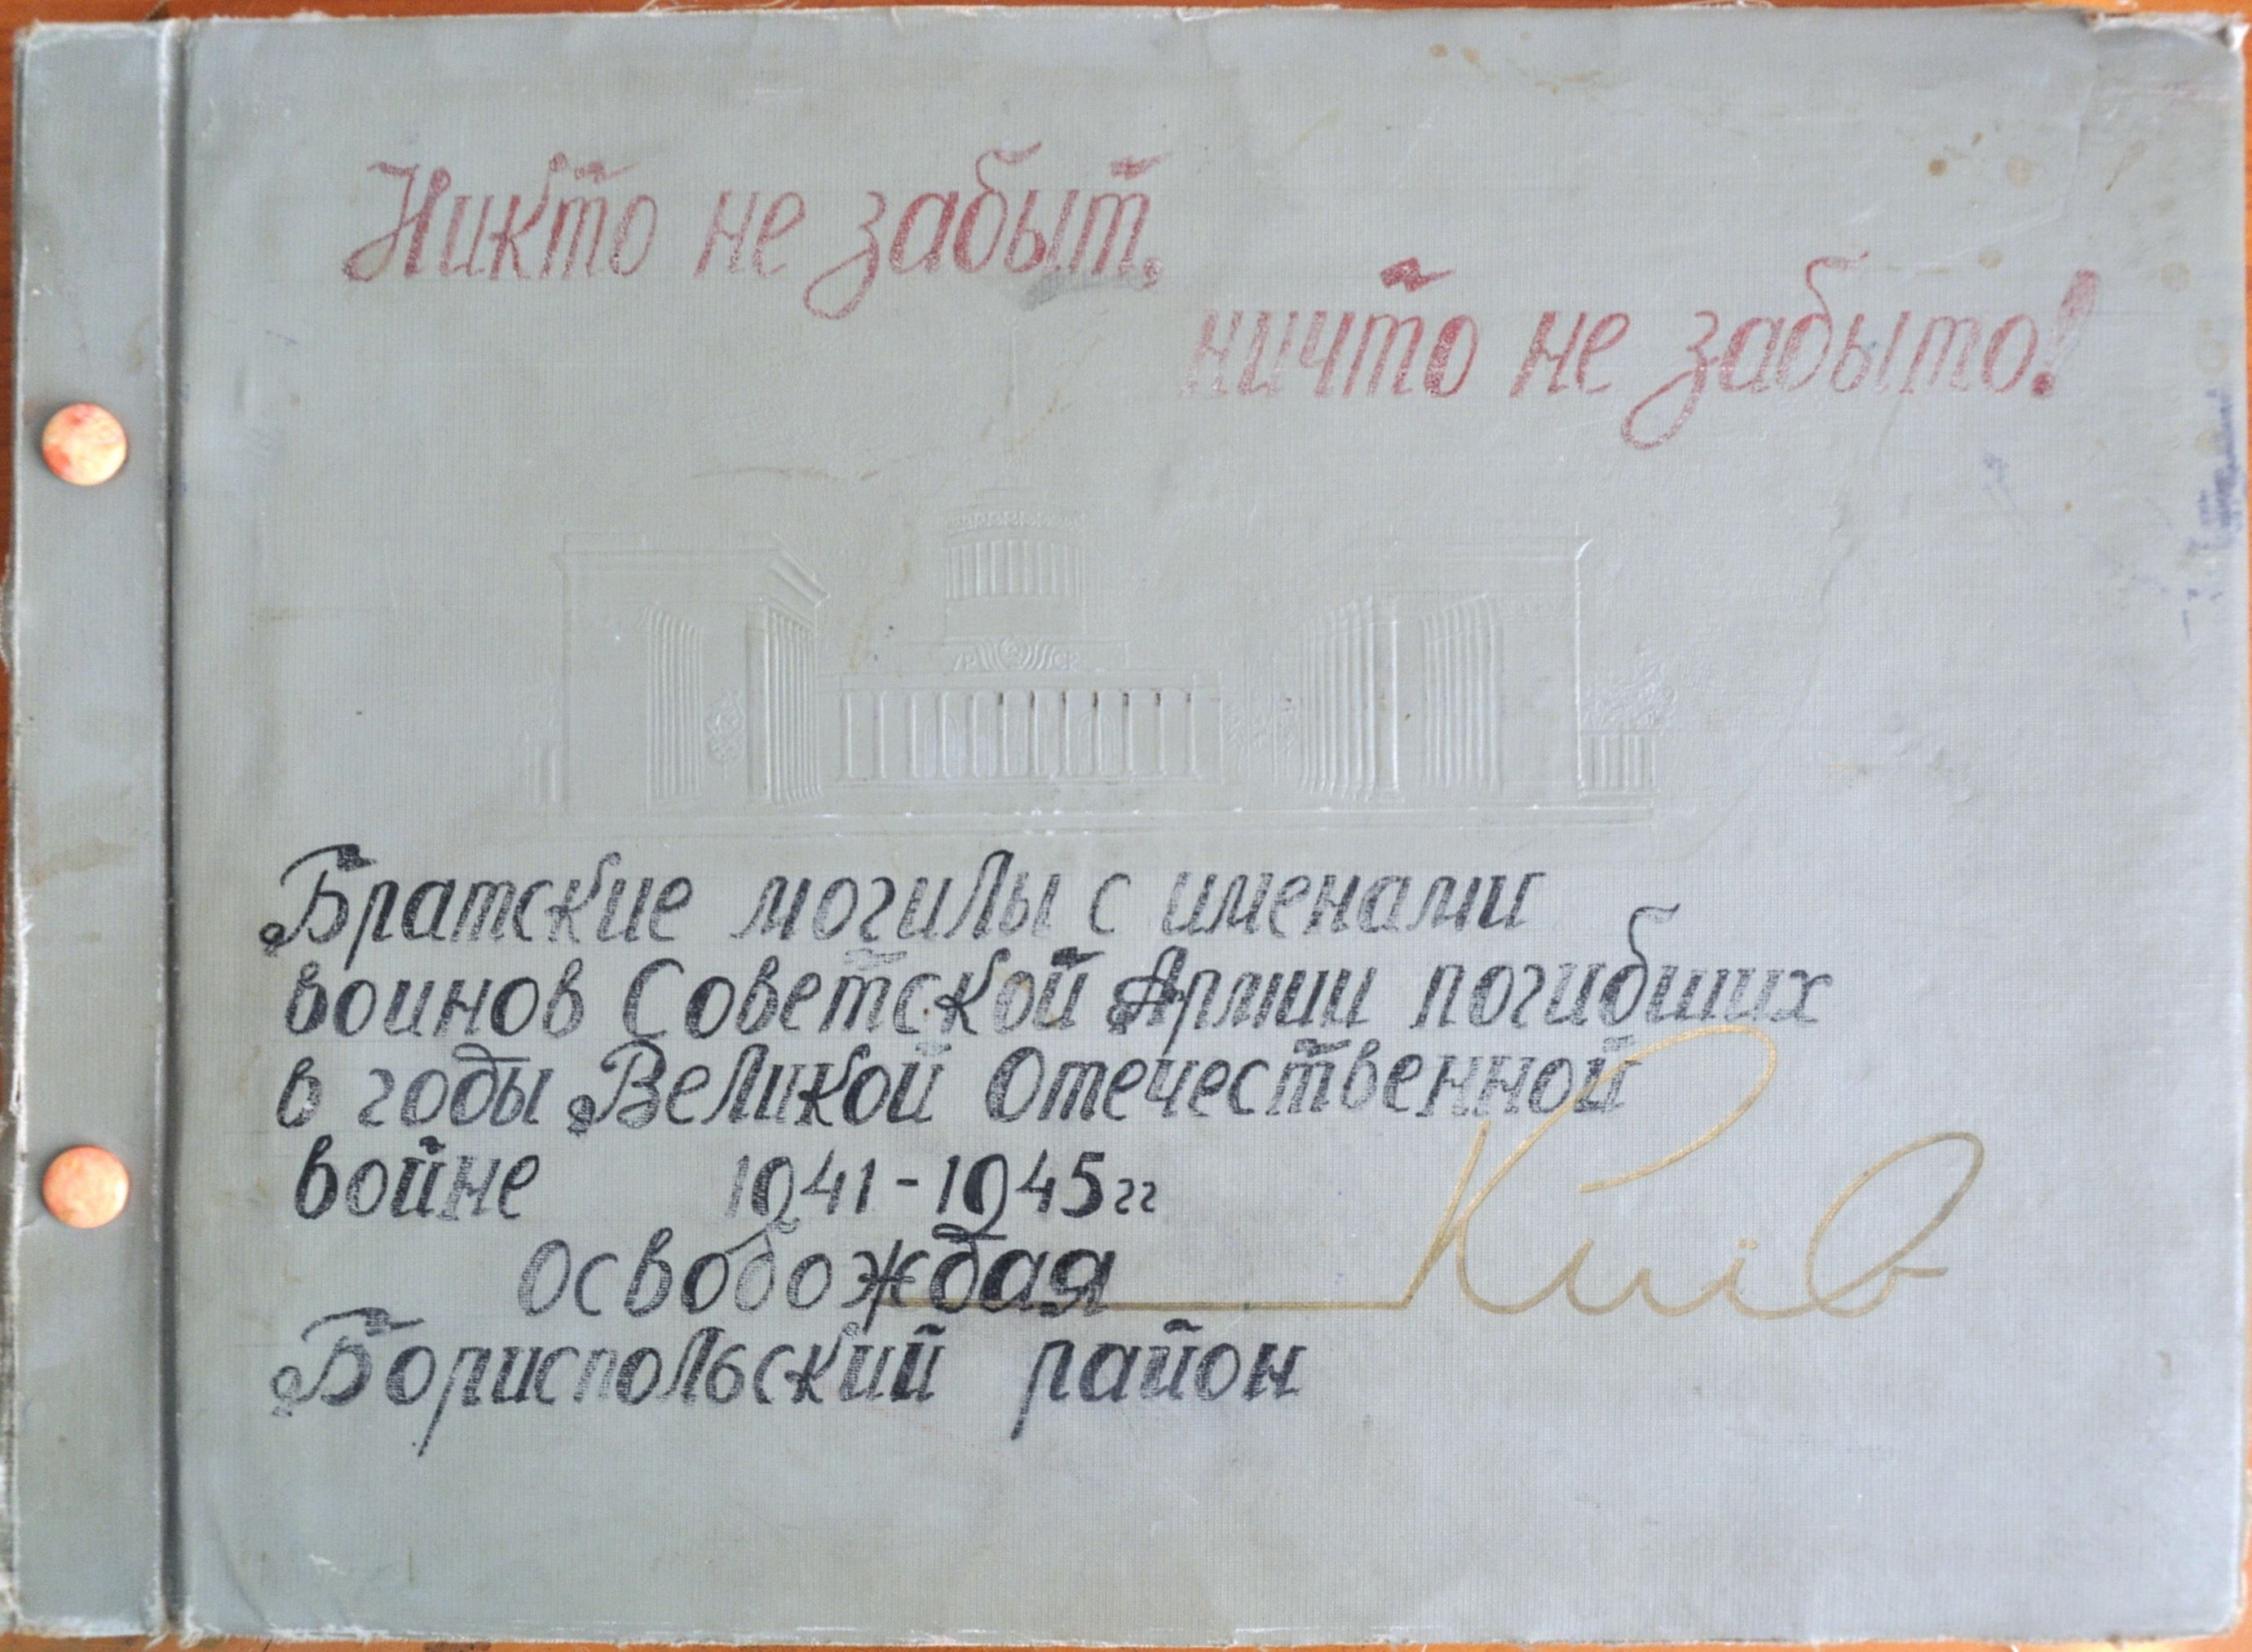 Никто не забыт,
ничто не забыто!
Братские могилы с именами
воинов Советской Армии погибших
в годы Великой Отечественной
войне 1941-1945гг
освобождая
Київ
Бориспольский район